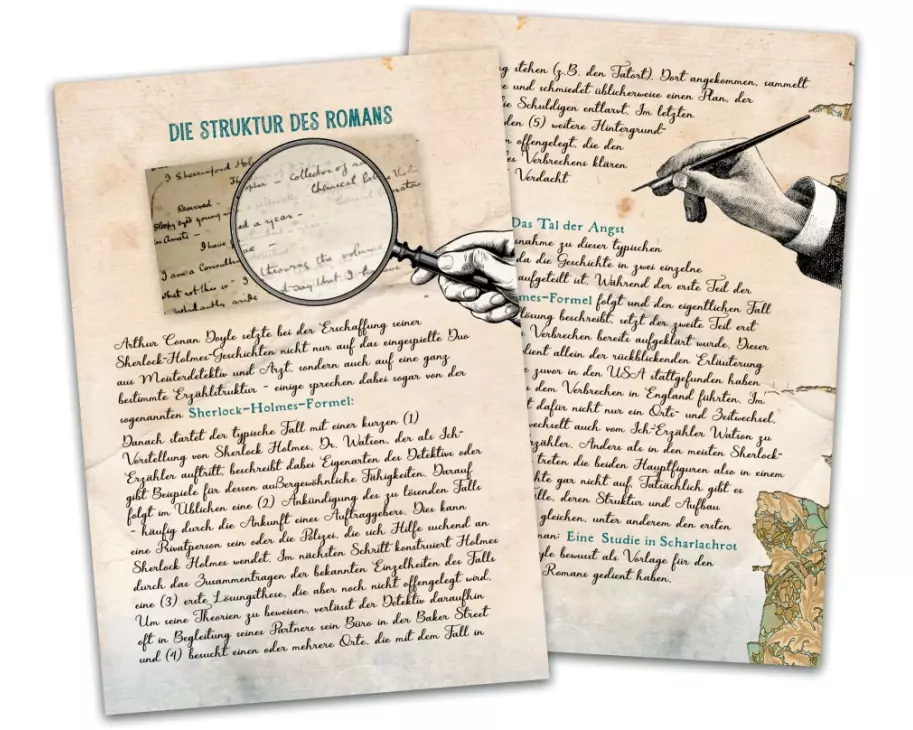 DIE STRUKTUR DES ROMANS
I Sherrinford Hol
Reserved -
sleepy eyed young
collector of
Chemical
I have
ed a year -
I am a Consulti
throuws the volume
day that I
Arthur Conan Doyle setzte bei der Erschaffung seiner
Sherlock-Holmes-Geschichten nicht nur auf das eingespielte Duo
aus Meisterdetektiv und Arzt, sondern auch auf eine ganz
bestimmte Erzählstruktur - einige sprechen dabei sogar von der
sogenannten Sherlock-Holmes-Formel:
Danach startet der typische Fall mit einer kurzen (1)
Vorstellung von Sherlock Holmes. Dr. Watson, der als Ich-
Erzähler auftritt, beschreibt dabei Eigenarten des Detektivs oder
gibt Beispiele für dessen außergewöhnliche Fähigkeiten. Darauf
folgt im Üblichen eine (2) Ankündigung des zu lösenden Falls
- häufig durch die Ankunft eines Auftraggebers. Dies kann
eine Privatperson sein oder die Polizei, die sich Hilfe suchend an
Sherlock Holmes wendet. Im nächsten Schritt konstruiert Holmes
durch das Zusammentragen der bekannten Einzelheiten des Falls
eine (3) erste Lösungsthese, die aber noch nicht offengelegt wird.
Um seine Theorien zu beweisen, verlässt der Detektiv daraufhin
oft in Begleitung seines Partners sein Büro in der Baker Street
und (4) besucht einen oder mehrere Orte, die mit dem Fall in
g stehen (z.B. den Tatort). Dort angekommen, sammelt
e und schmiedet üblicherweise einen Plan, der
ie Schuldigen entlarvt. Im letzten
den (5) weitere Hintergrund-
n offengelegt, die den
es Verbrechens klären
Verdacht
Das Tal der Angst
nahme zu dieser typischen
da die Geschichte in zwei einzelne
aufgeteilt ist. Während der erste Teil der
mes-Formel folgt und den eigentlichen Fall
lösung beschreibt, setzt der zweite Teil erst
Verbrechen bereits aufgeklärt wurde. Dieser
dient allein der rückblickenden Erläuterung
e zuvor in den USA stattgefunden haben
dem Verbrechen in England führten. Im
t dafür nicht nur ein Orts- und Zeitwechsel,
wechselt auch vom Ich-Erzähler Watson zu
rzähler. Anders als in den meisten Sherlock-
treten die beiden Hauptfiguren also in einem
hte gar nicht auf. Tatsächlich gibt es
lle, deren Struktur und Aufbau
gleichen, unter anderem den ersten
man: Eine Studie in Scharlachrot
yle bewusst als Vorlage für den
Romans gedient haben.